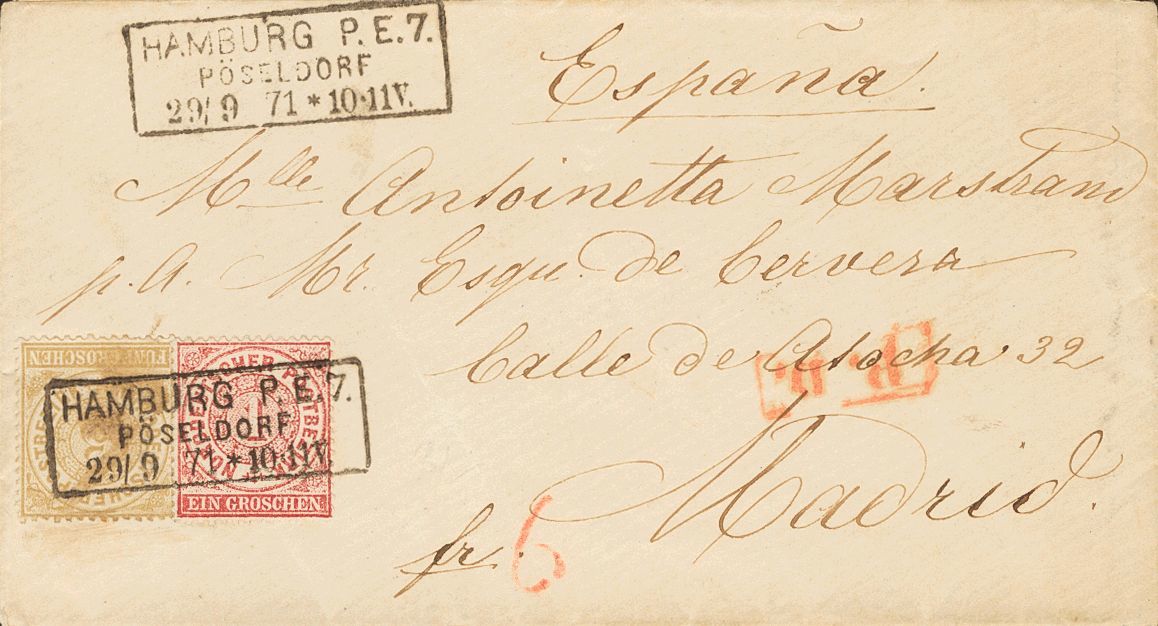 HAMBURG P.E.7.
PÖSELDORF
29/9 71 * 10-11V.
España.
Mlle Antoinetta Marstrand
p.A. Mr. Esqu. de Cervera
Calle de Atocha 32
Madrid.
P.D.
FÜNF GROSCHEN
HAMBURG P.E.7.
PÖSELDORF
29/9 71 * 10-11V.
EIN GROSCHEN
fr. 6